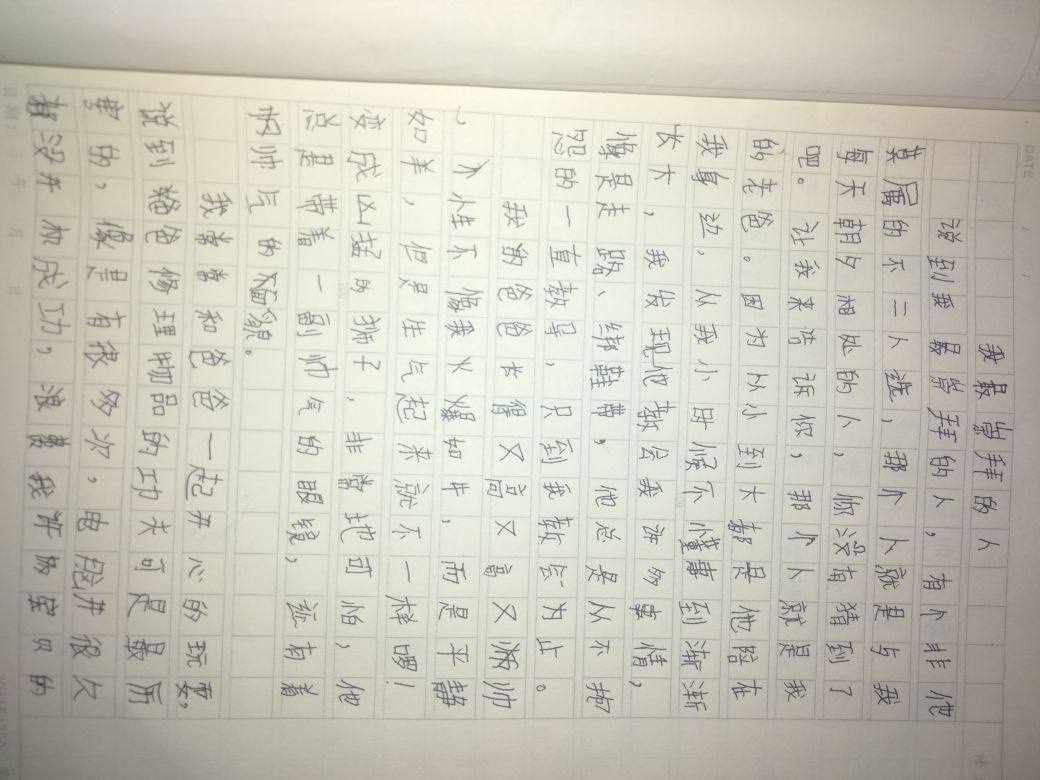 DATE
我最崇拜的人
说到我最崇拜的人，有个非他
莫属的不二人选，那个人就是与我
每天朝夕相处的人，你没有猜到了
吧。让我来告诉你，那个人就是我
的老爸。因为从小到大都是他陪在
我身边，从我小时候不懂事到渐渐
长大，我发现他教会我许多事情，
像是走路、绑鞋带，他总是从不抱
怨的一直教导，只到我教会为止。
我的爸爸长得又高又高又帅帅
，个性不像我火爆如牛，而是平静
如羊，但是生气起来就不一样啰！
变成凶猛的狮子，非常地可怕，他
总是带着一副帅气的眼镜，还有着
帅气的面貌。
我常常和爸爸一起开心的玩耍，
说到爸爸修理物品的功夫可是最厉
害的，像是有很多次，电脑开很久
都没开机成功，浪费我许多宝贝的
日期： 年 月 日